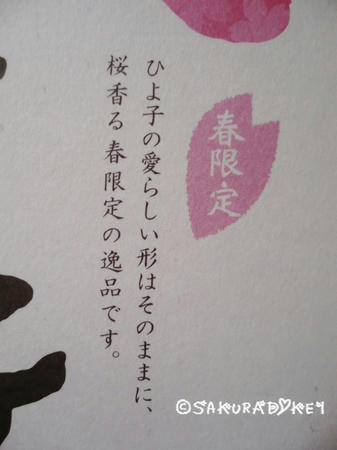 春限定
ひよ子の愛らしい形はそのままに、
桜香る春限定の逸品です。
©SAKURADYKEY